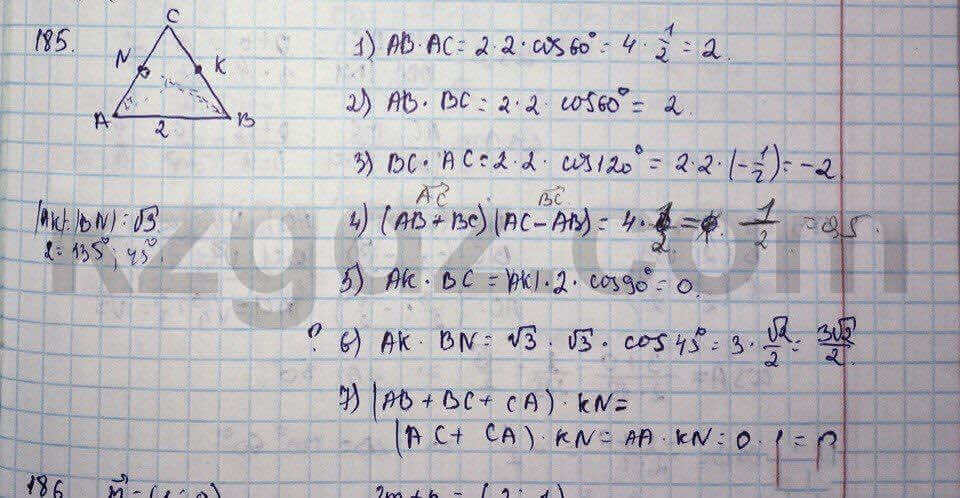 185.
C
N
K
A
B
2
1) AB · AC = 2 · 2 · cos60° = 4 · 1/2 = 2.
2) AB · BC = 2 · 2 · cos60° = 2.
3) BC · AC = 2 · 2 · cos120° = 2 · 2 · (-1/2) = -2
AC BC
|AK| = |BN| = √3
4) (AB + BC) (AC - AB) = 4 ·
1/2
5) AK · BC = |AK| · 2 · cos90° = 0.
? 6) AK · BN = √3 · √3 · cos 45° = 3 · √2/2 = 3√2/2.
7) (AB + BC + CA) · KN =
(AC + CA) · KN = AA · KN = 0 · 1 = 0
186
kzgdz.com